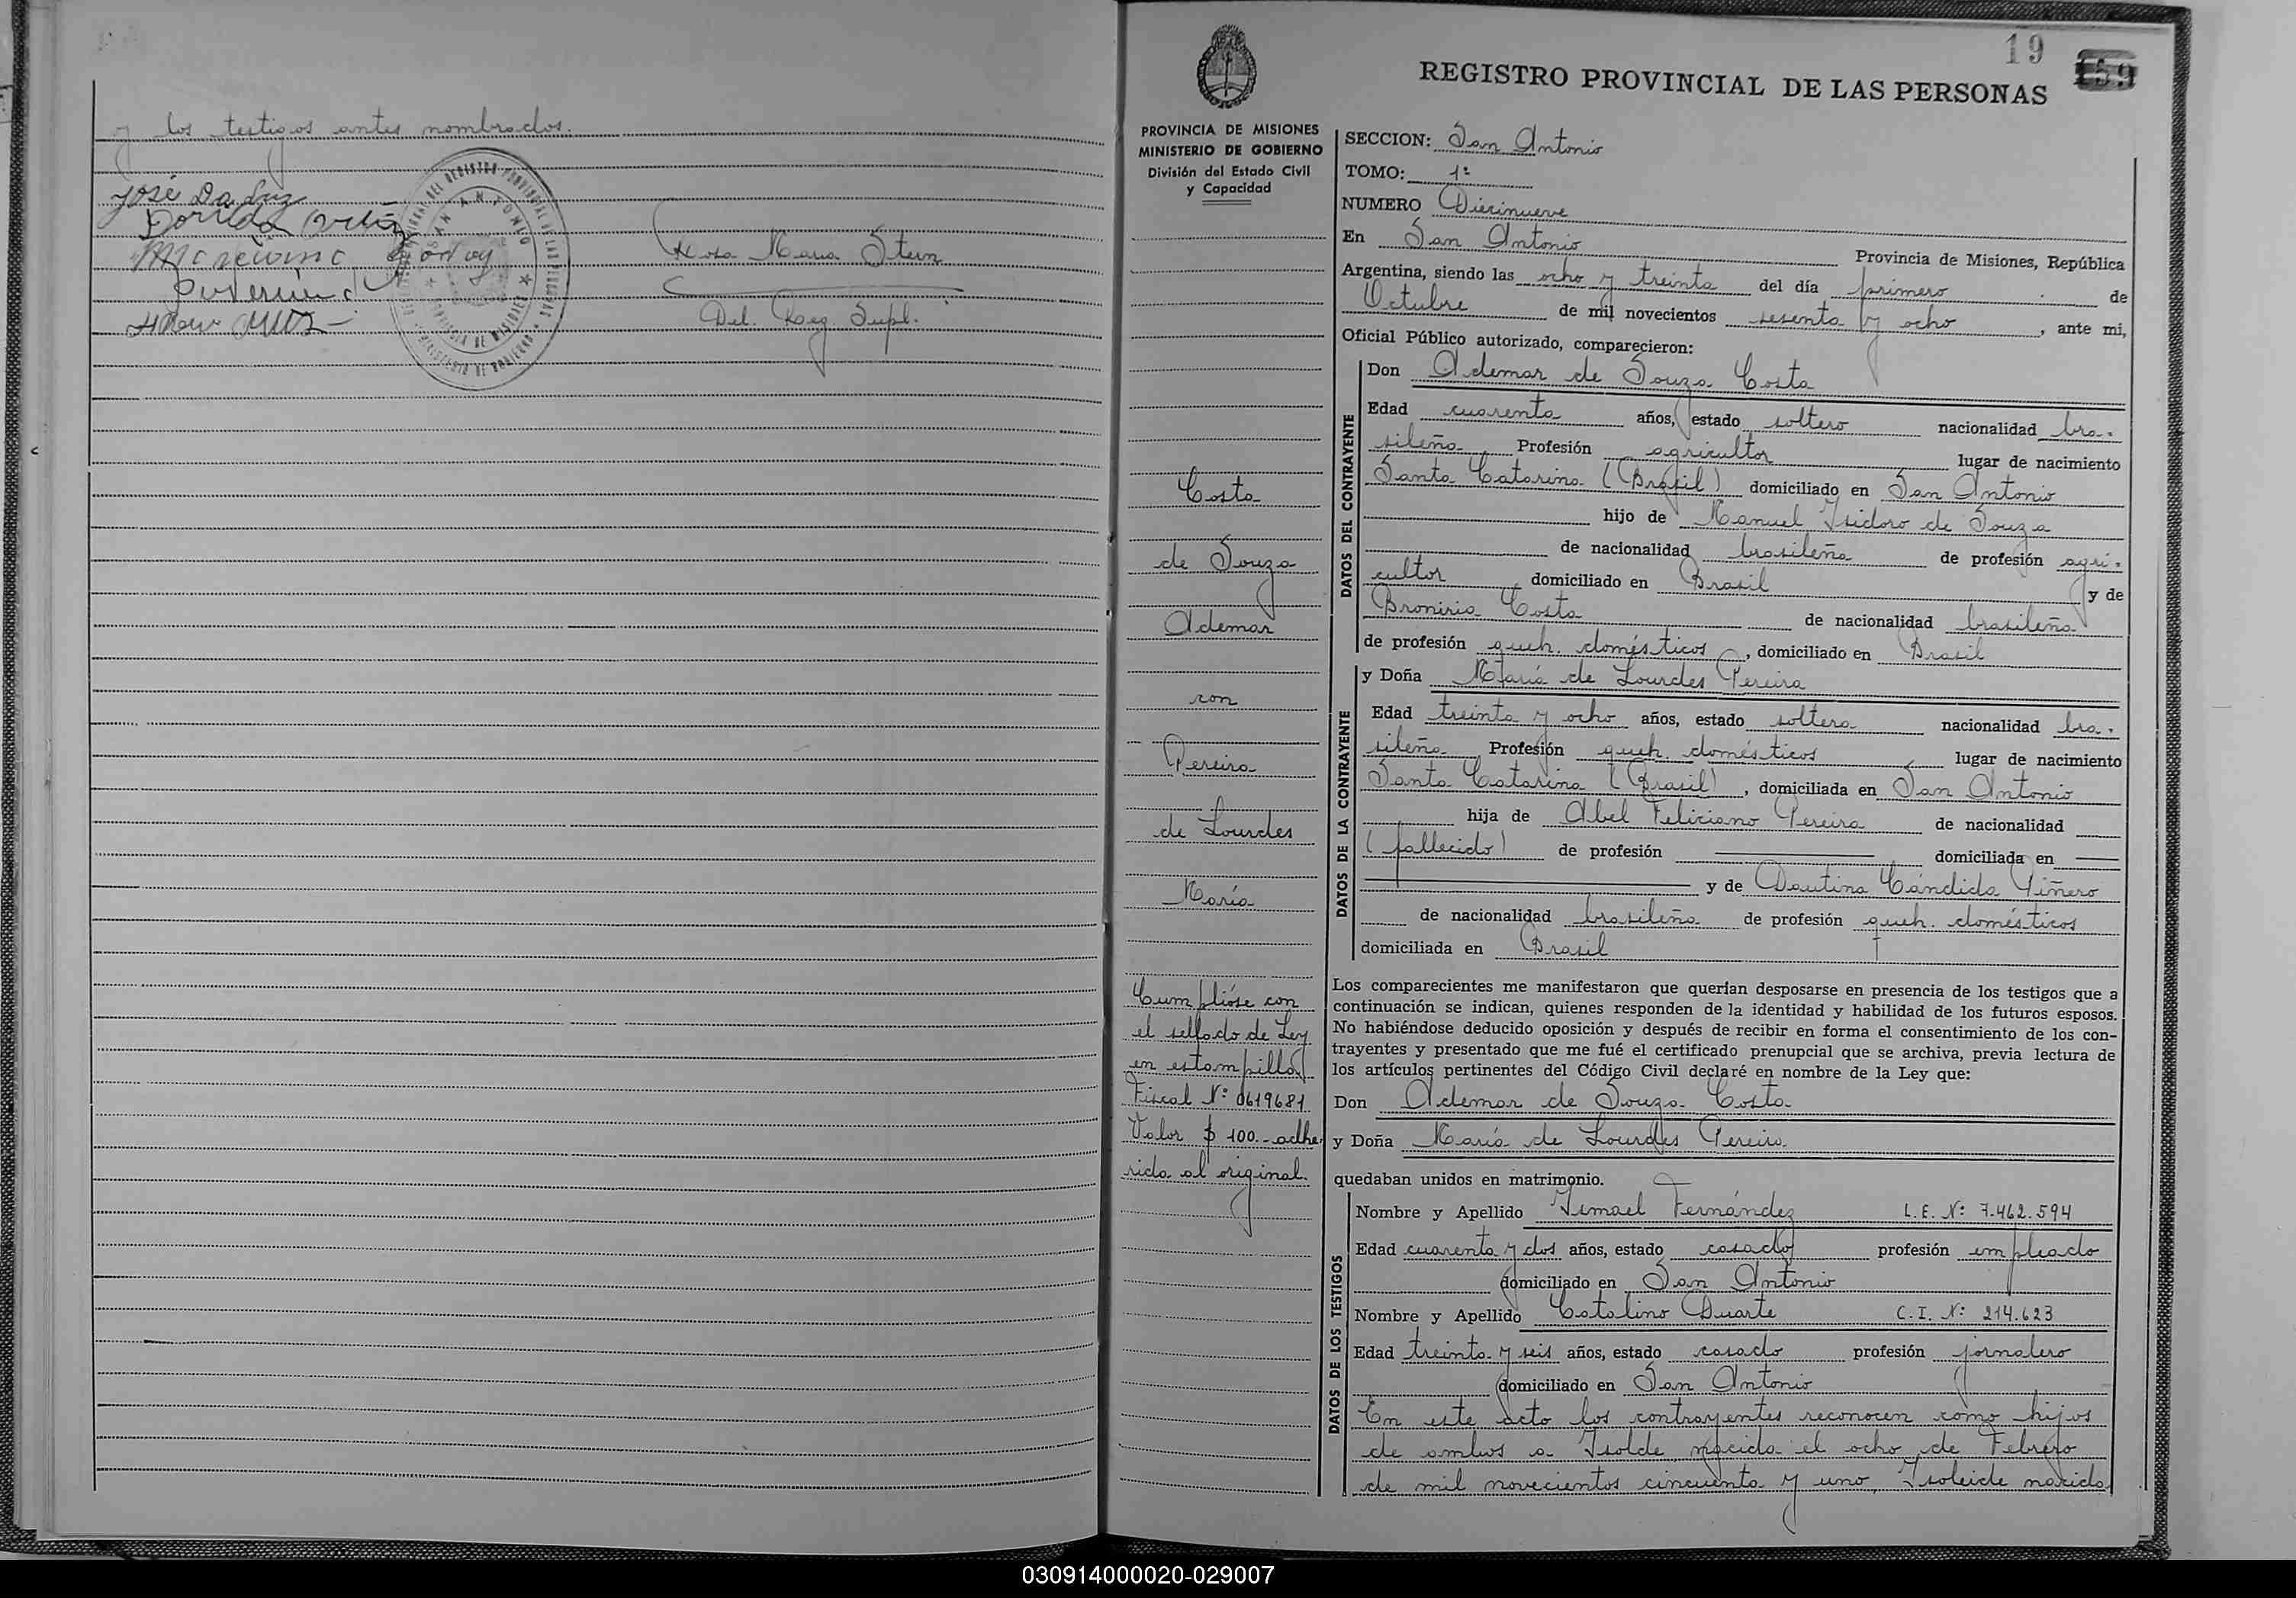 y los testigos antes nombrados.
José Da Luz
Marcelino Godoy
Rosa María Stein
Del. Reg. Supl.
SAN ANTONIO
19
159
REGISTRO PROVINCIAL DE LAS PERSONAS
PROVINCIA DE MISIONES
MINISTERIO DE GOBIERNO
División del Estado Civil
y Capacidad
Costa
de Souza
Ademar
con
Pereira
de Lourdes
María
Cumplióse con
el sellado de Ley
en estampilla
Fiscal Nº 0619681
Valor $ 100.- adhe
rida al original.
SECCION: San Antonio
TOMO: 1º
NUMERO Diecinueve
En San Antonio Provincia de Misiones, República
Argentina, siendo las ocho y treinta del día primero de
Octubre de mil novecientos sesenta y ocho, ante mi,
Oficial Público autorizado, comparecieron:
DATOS DEL CONTRAYENTE
Don Ademar de Souza Costa
Edad cuarenta años, estado soltero nacionalidad bra-
sileña Profesión agricultor lugar de nacimiento
Santa Catarina (Brasil) domiciliado en San Antonio
hijo de Manuel Isidoro de Souza
de nacionalidad brasileña de profesión agri-
cultor, domiciliado en Brasil y de
Broniria Costa de nacionalidad brasileña
de profesión queh. domésticos, domiciliado en Brasil
DATOS DE LA CONTRAYENTE
y Doña María de Lourdes Pereira
Edad treinta y ocho años, estado soltera nacionalidad bra-
sileña Profesión queh. domésticos lugar de nacimiento
Santa Catarina (Brasil), domiciliada en San Antonio
hija de Abel Feliciano Pereira de nacionalidad
(fallecido) de profesión domiciliada en
y de Dautina Cándida Piñero
de nacionalidad brasileña de profesión queh. domésticos
domiciliada en Brasil
Los comparecientes me manifestaron que querían desposarse en presencia de los testigos que a
continuación se indican, quienes responden de la identidad y habilidad de los futuros esposos.
No habiéndose deducido oposición y después de recibir en forma el consentimiento de los con-
trayentes y presentado que me fué el certificado prenupcial que se archiva, previa lectura de
los artículos pertinentes del Código Civil declaré en nombre de la Ley que:
Don Ademar de Souza Costa
y Doña María de Lourdes Pereira
quedaban unidos en matrimonio.
DATOS DE LOS TESTIGOS
Nombre y Apellido Ismael Fernández L.E. Nº 7.462.594
Edad cuarenta y dos años, estado casado profesión empleado
domiciliado en San Antonio
Nombre y Apellido Catalino Duarte C.I. Nº 214.623
Edad treinta y seis años, estado casado profesión jornalero
domiciliado en San Antonio
En este acto los contrayentes reconocen como hijos
de ambos a Isolde nacida el ocho de Febrero
de mil novecientos cincuenta y uno, Isoleide nacida
030914000020-029007